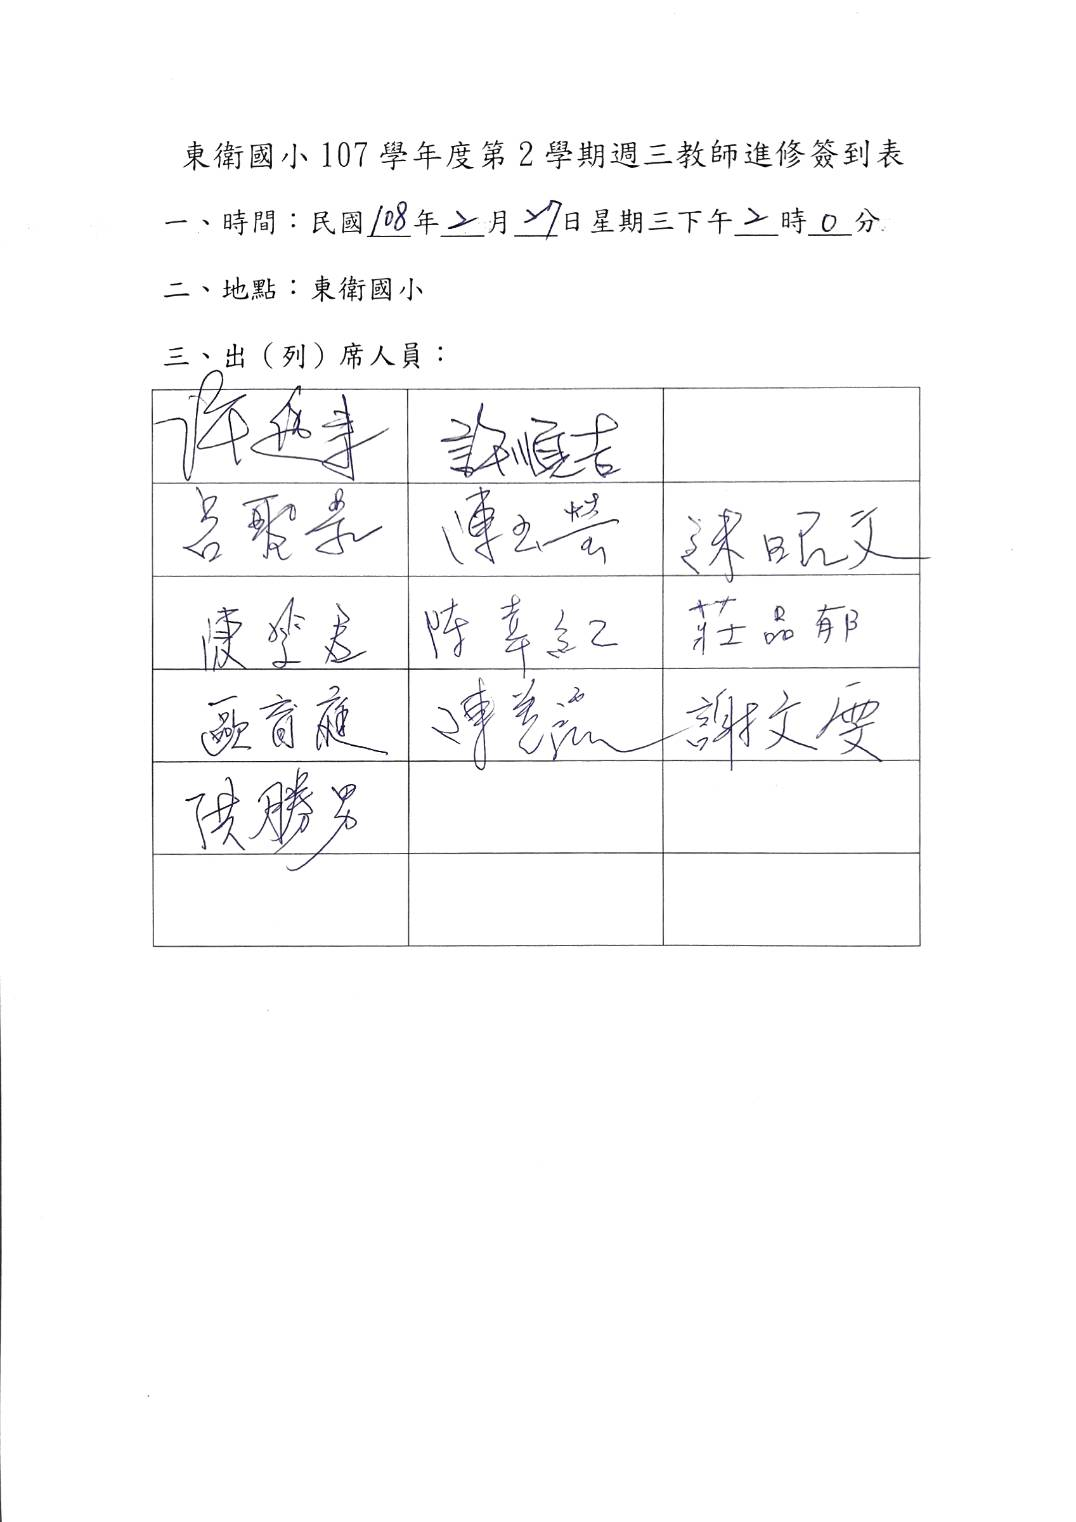 東衛國小107學年度第2學期週三教師進修簽到表
一、時間：民國108年2月27日星期三下午2時0分
二、地點：東衛國小
三、出（列）席人員：
許 許順吉
呂 陳玉 昭文
陳 陳幸紅 莊品郁
歐育 陳 謝文雯
洪勝男